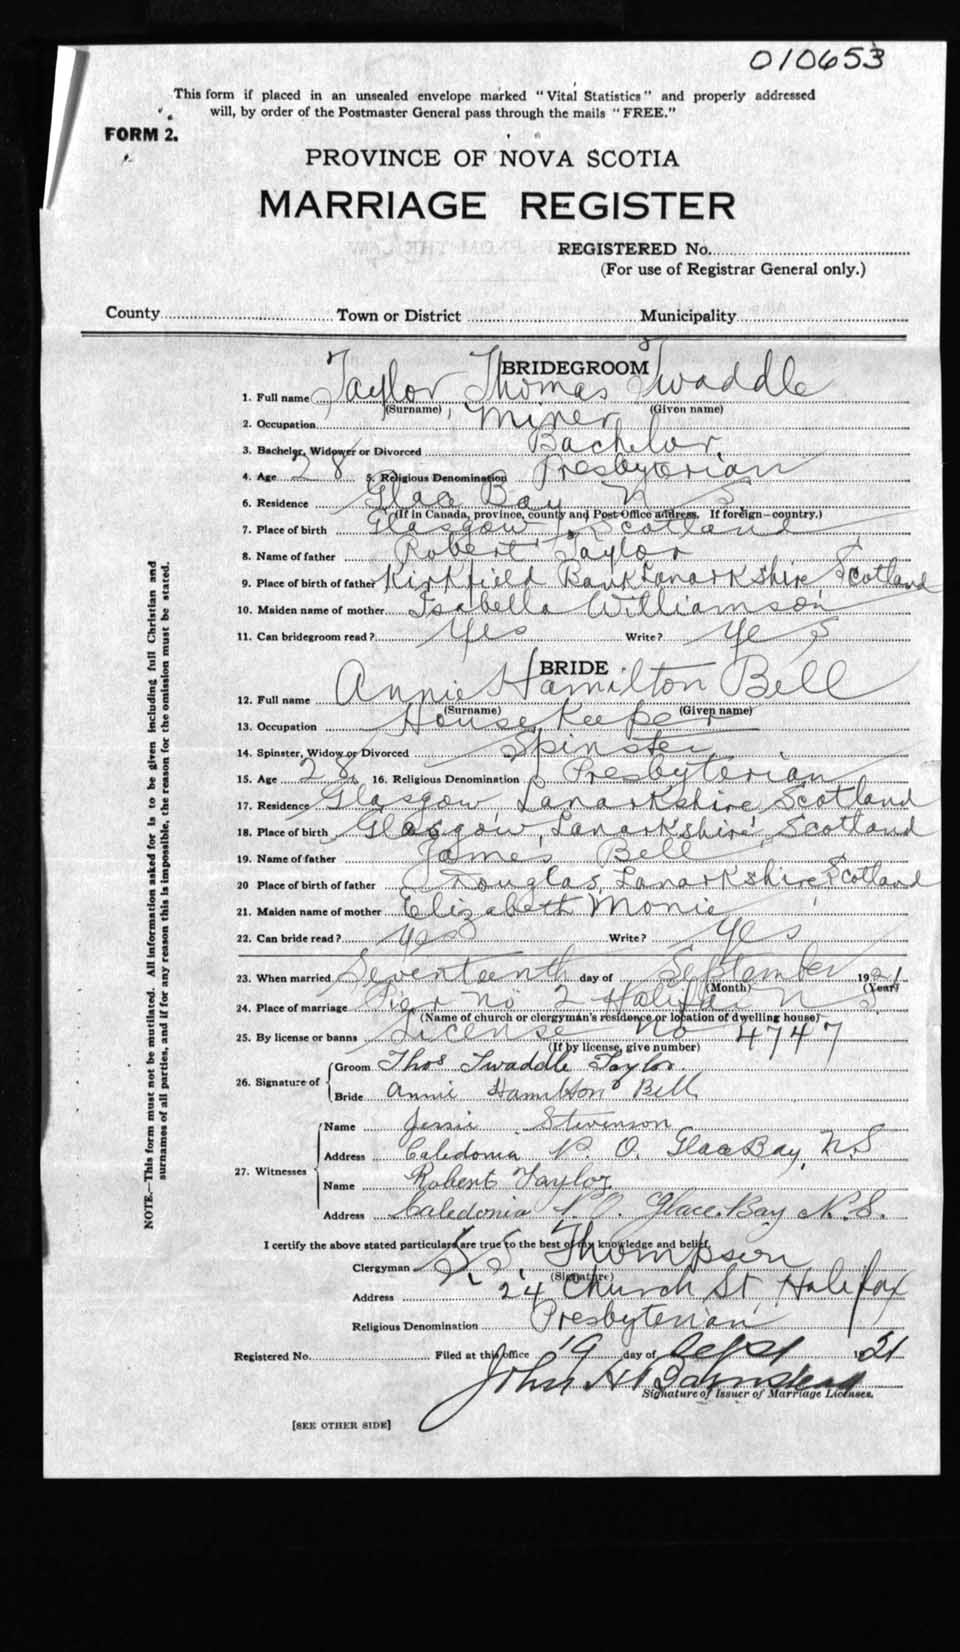 010653
This form if placed in an unsealed envelope marked "Vital Statistics" and properly addressed
will, by order of the Postmaster General pass through the mails "FREE."
FORM 2.
PROVINCE OF NOVA SCOTIA
MARRIAGE REGISTER
REGISTERED No.
(For use of Registrar General only.)
County Town or District Municipality
BRIDEGROOM
1. Full name Taylor Thomas Twaddle
(Surname) (Given name)
2. Occupation Miner
3. Bachelor, Widower or Divorced Bachelor
4. Age 28 5. Religious Denomination Presbyterian
6. Residence Glace Bay N S
(If in Canada, province, county and Post Office address. If foreign—country.)
7. Place of birth Glasgow, Scotland
8. Name of father Robert Taylor
9. Place of birth of father Kirkfield Bank Lanarkshire, Scotland
10. Maiden name of mother Isabella Williamson
11. Can bridegroom read? Yes Write? Yes
BRIDE
12. Full name Annie Hamilton Bell
(Surname) (Given name)
13. Occupation House Keeper
14. Spinster, Widow or Divorced Spinster
15. Age 28 16. Religious Denomination Presbyterian
17. Residence Glasgow, Lanarkshire, Scotland
18. Place of birth Glasgow, Lanarkshire, Scotland
19. Name of father James Bell
20 Place of birth of father Douglas, Lanarkshire, Scotland
21. Maiden name of mother Elizabeth Monie
22. Can bride read? Yes Write? Yes
23. When married Seventeenth day of September 1921
(Month) (Year)
24. Place of marriage Pier No 2 Halifax N S
(Name of church or clergyman's residence or location of dwelling house)
25. By license or banns License No 4747
(If by license, give number)
26. Signature of Groom Thos Twaddle Taylor
Bride Annie Hamilton Bell
27. Witnesses Name Jessie Stevenson
Address Caledonia P. O. Glace Bay, N.S
Name Robert Taylor
Address Caledonia P.O. Glace Bay N.S.
I certify the above stated particulars are true to the best of my knowledge and belief.
Clergyman Thompson
(Signature)
Address 24 Church St, Halifax
Religious Denomination Presbyterian
Registered No. Filed at this office 19 day of Sept 1921
John H
Signature of Issuer of Marriage Licenses.
[SEE OTHER SIDE]
NOTE.—This form must not be mutilated. All information asked for is to be given including full Christian and
surnames of all parties, and if for any reason this is impossible, the reason for the omission must be stated.